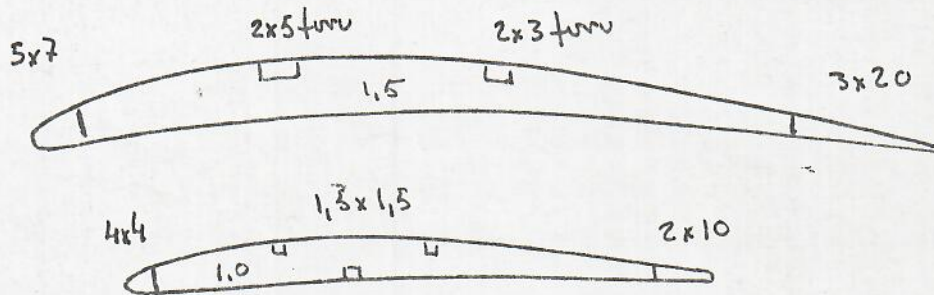 5x7
2x5 furu
2x3 furu
1,5
3x20
4x4
1,5x1,5
2x10
1,0